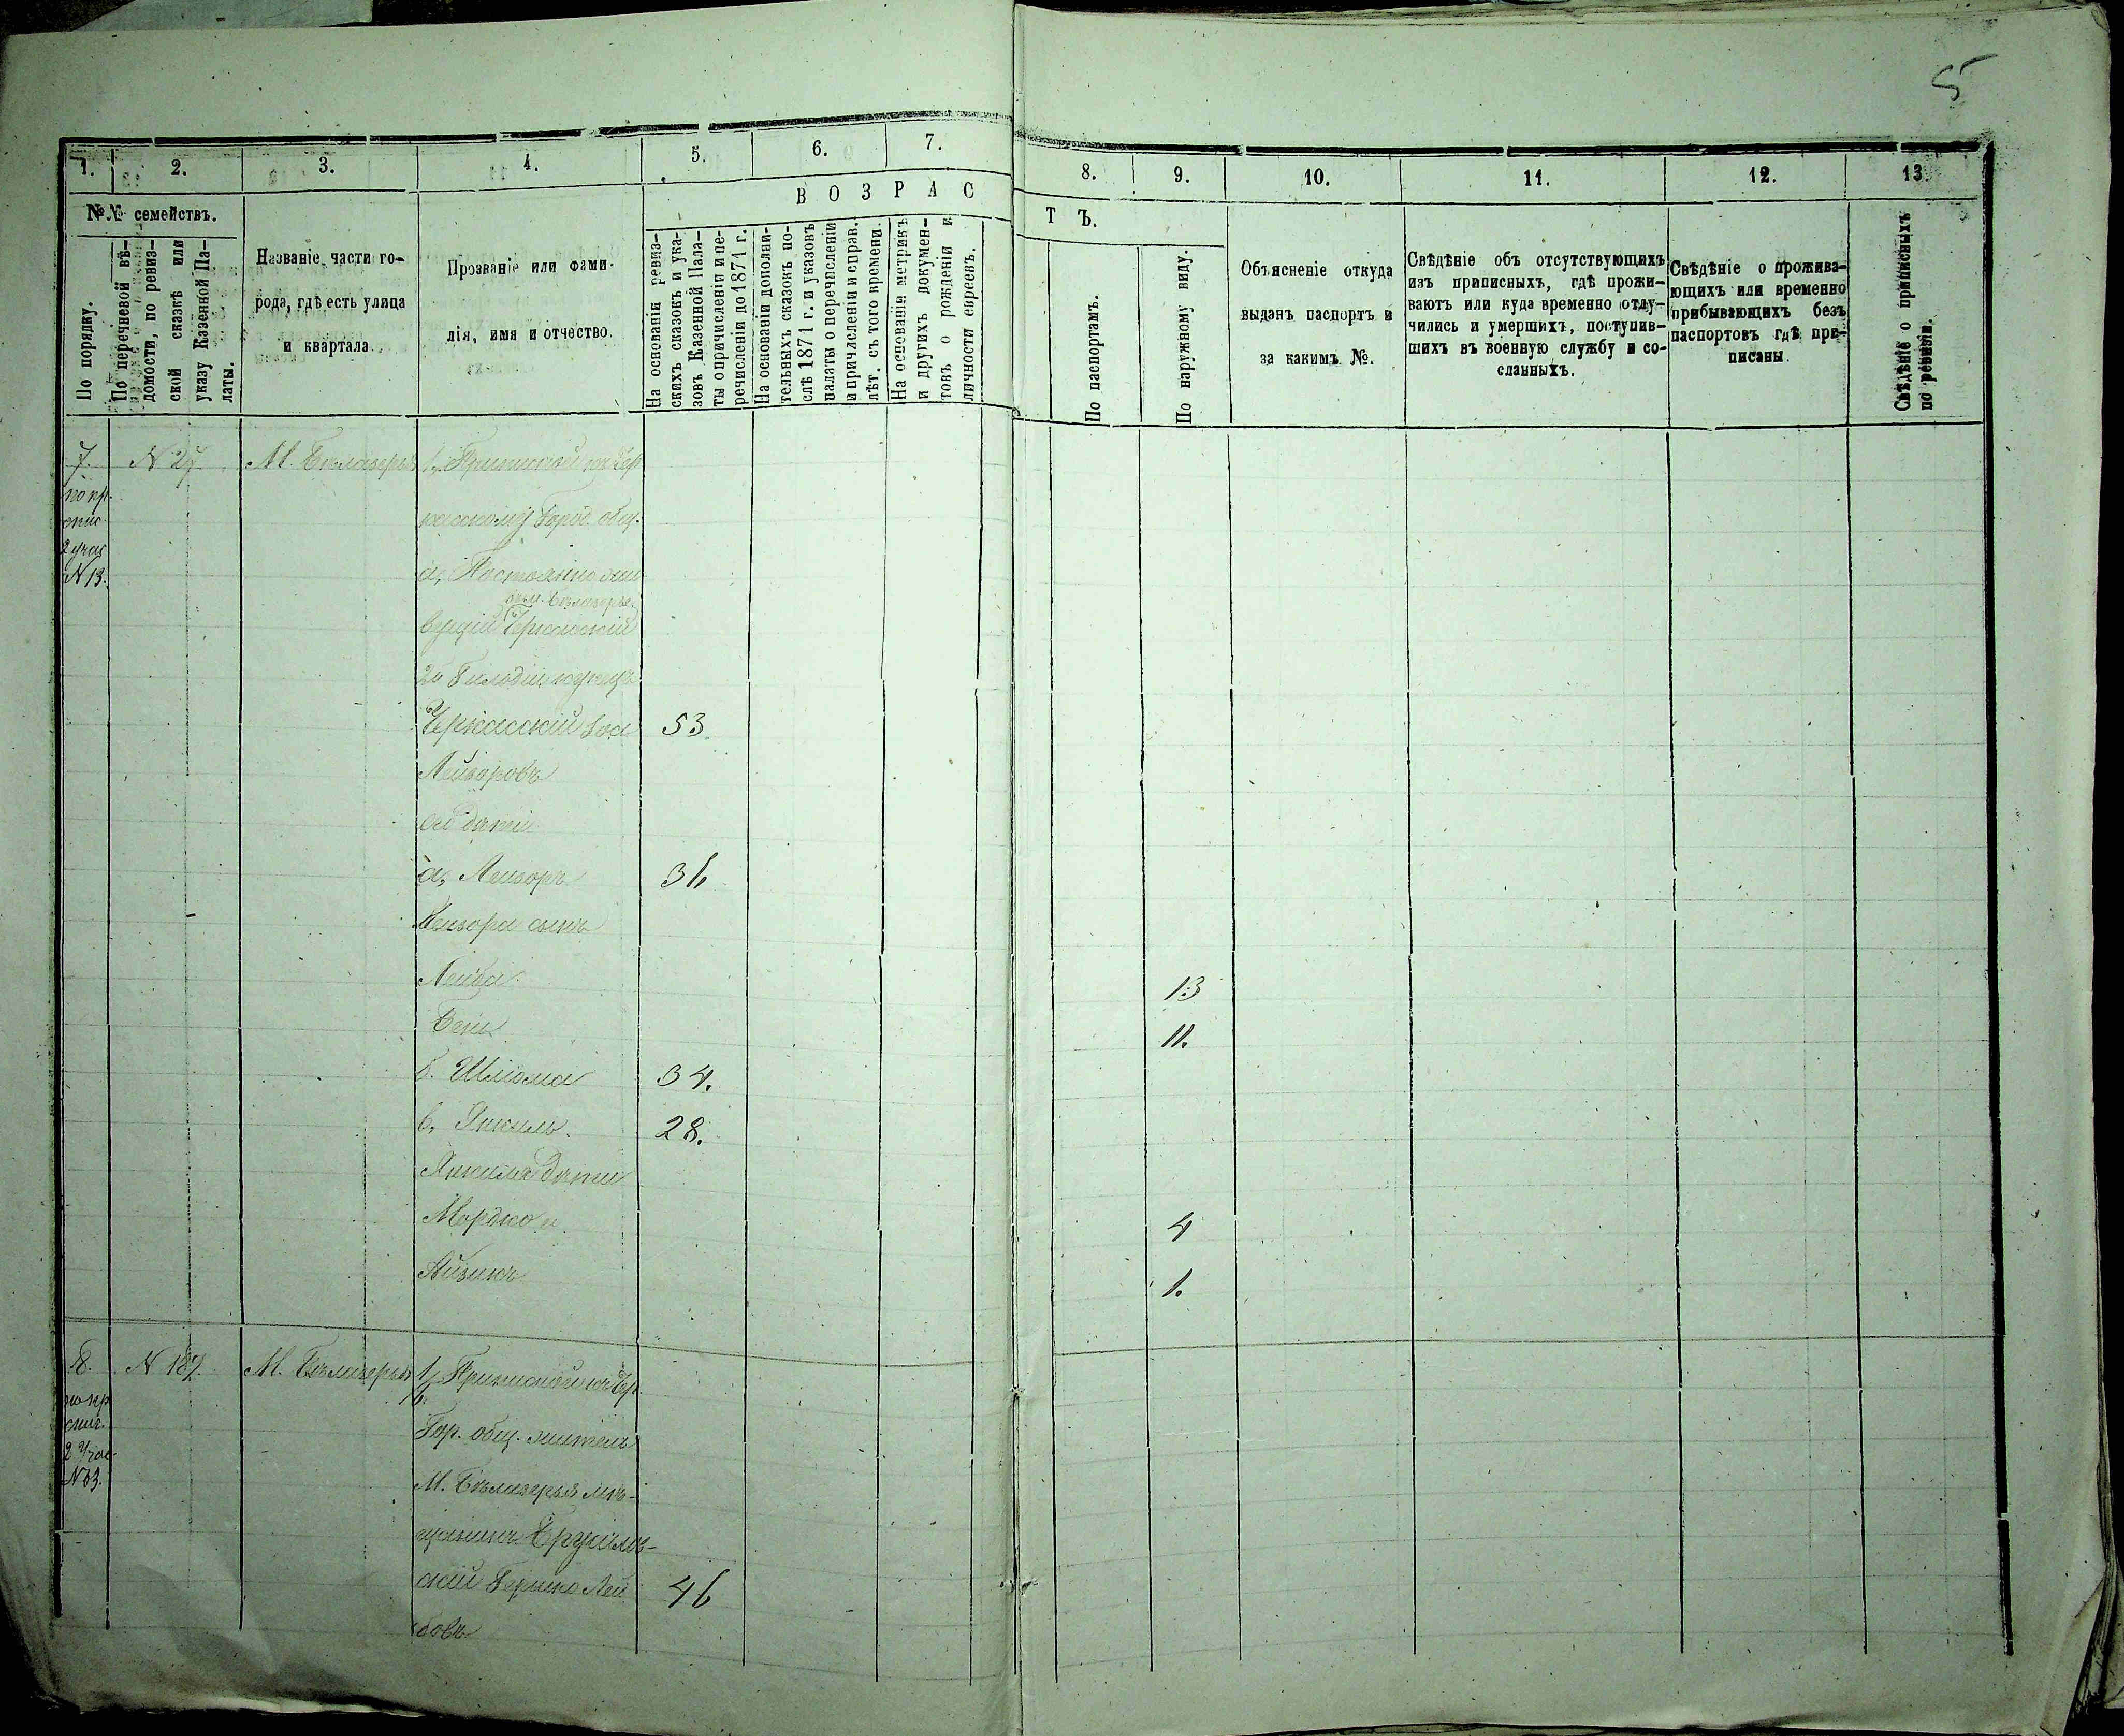 5
1.
2.
3.
4.
5.
6.
7.
8.
9.
10.
11.
12.
13.
№№ семействъ.
По порядку.
По перечневой вѣ-
домости, по ревиз-
ской сказкѣ или
указу Казенной Па-
латы.
Названіе части го-
рода, гдѣ есть улица
и квартала.
Прозваніе или фами-
лія, имя и отчество.
ВОЗРАС
ТЪ.
На основаніи ревиз-
скихъ сказокъ и ука-
зовъ Казенной Пала-
ты о причисленіи и пе-
речисленіи до 1871 г.
На основаніи дополни-
тельныхъ сказокъ по-
слѣ 1871 г. и указовъ
палаты о перечисленіи
и причисленіи и справ.
лѣт. съ того времени.
На основаніи метрикъ
и другихъ докумен-
товъ о рожденіи и
личности евреевъ.
По паспортамъ.
По наружному виду.
Объясненіе откуда
выданъ паспортъ и
за какимъ №.
Свѣдѣніе объ отсутствующихъ
изъ приписныхъ, гдѣ прожи-
ваютъ или куда временно отлу-
чились и умершихъ, поступив-
шихъ въ военную службу и со-
сланныхъ.
Свѣдѣніе о прожива-
ющихъ или временно
прибывающихъ безъ
паспортовъ гдѣ при-
писаны.
Свѣдѣніе о приписныхъ
по ревизіи.
7. N 27 М. Бѣлозерье 1, Приписной къ Чер
по пр.
спис.
касскому Гор. общ.
2 учас
N 13.
а, Постоянно жи-
въ м. Бѣлозерье
вущій Черкасскій
2й Гильдіи купецъ
Черкасскій 53
Лейзоровъ
его дѣти
а, Лейзоръ 36
Лейзора сынъ
Лейба 13
Беня 11.
б. Шліома 34.
в, Янкель 28.
Янкеля дѣти
Мордко и 4
Айзикъ 1.
8. N 187. М. Бѣлозерье 1, Приписной къ Чер.
по пр
спис.
Гор. общ. житель
2 Учас
М. Бѣлозерья мѣ-
щанинъ Брусилов-
скій Гершко Лей 46
бовъ